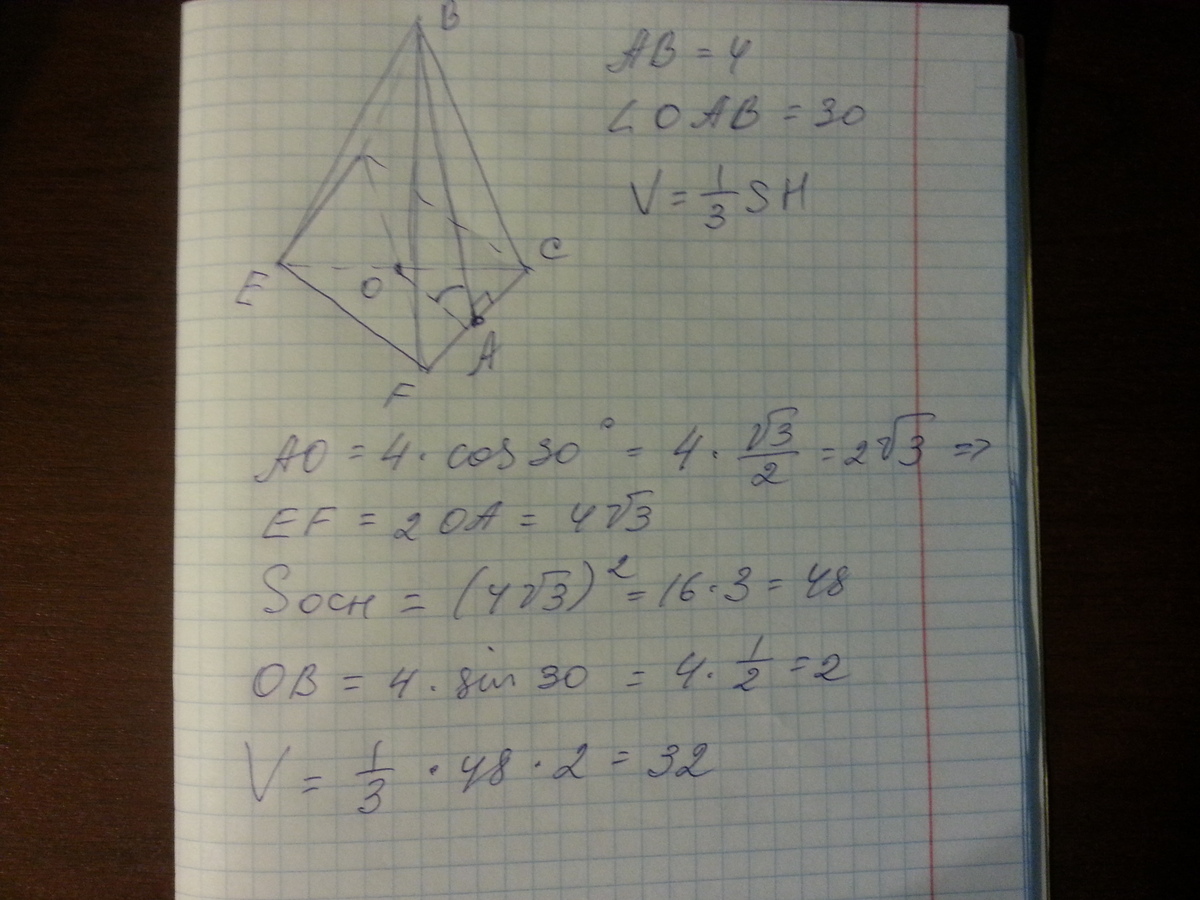 B
AB = 4
∠OAB = 30
V = 1/3 SH
C
E
O
A
F
AO = 4 · cos 30° = 4 · √3/2 = 2√3 =>
EF = 2OA = 4√3
Sосн = (4√3)² = 16·3 = 48
OB = 4 · sin 30 = 4 · 1/2 = 2
V = 1/3 · 48 · 2 = 32